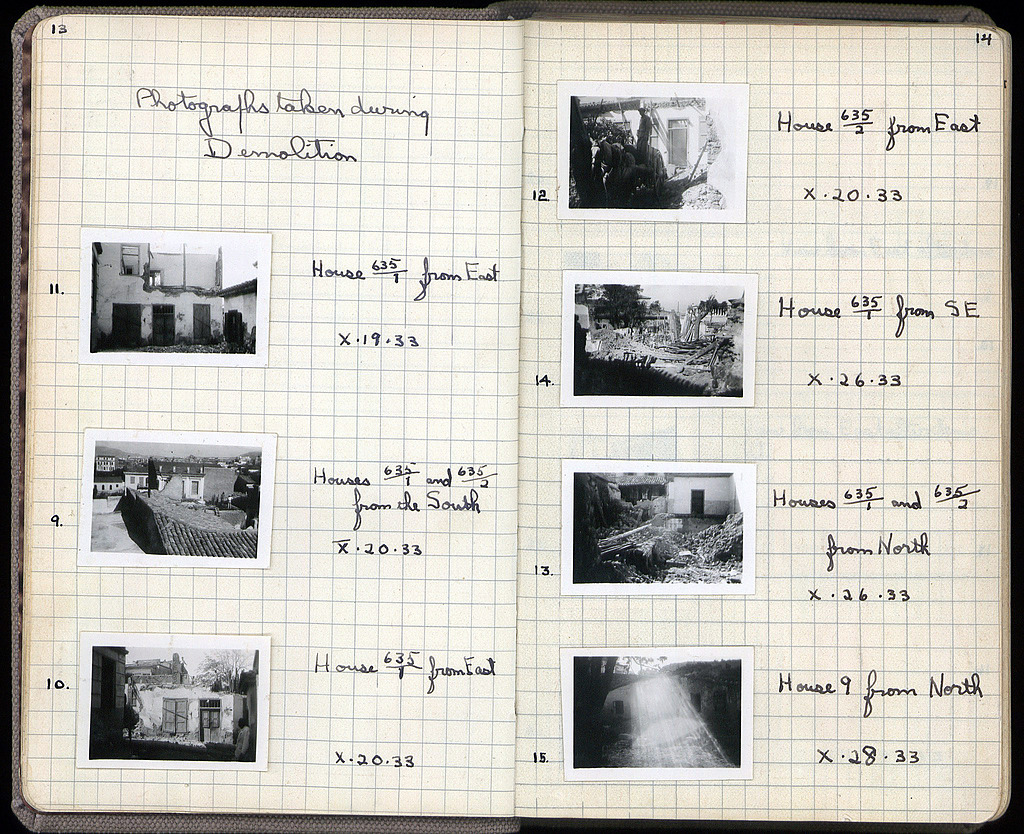 13
Photographs taken during
Demolition
11.
House 635/1 from East
X.19.33
9.
Houses 635/1 and 635/2
from the South
X.20.33
10.
House 635/1 from East
X.20.33
14
12
House 635/2 from East
X.20.33
14.
House 635/1 from SE
X.26.33
13.
Houses 635/1 and 635/2
from North
X.26.33
15.
House 9 from North
X.28.33